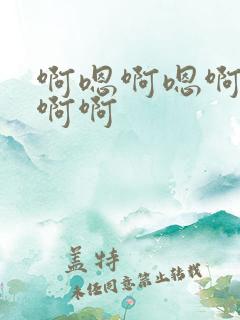 啊嗯啊嗯啊
啊啊
盖特
未经同意禁止转载